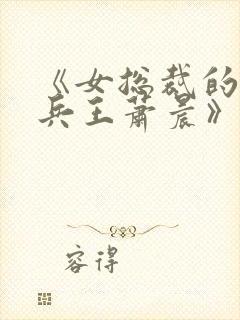 《女总裁的
兵王萧晨》
容得